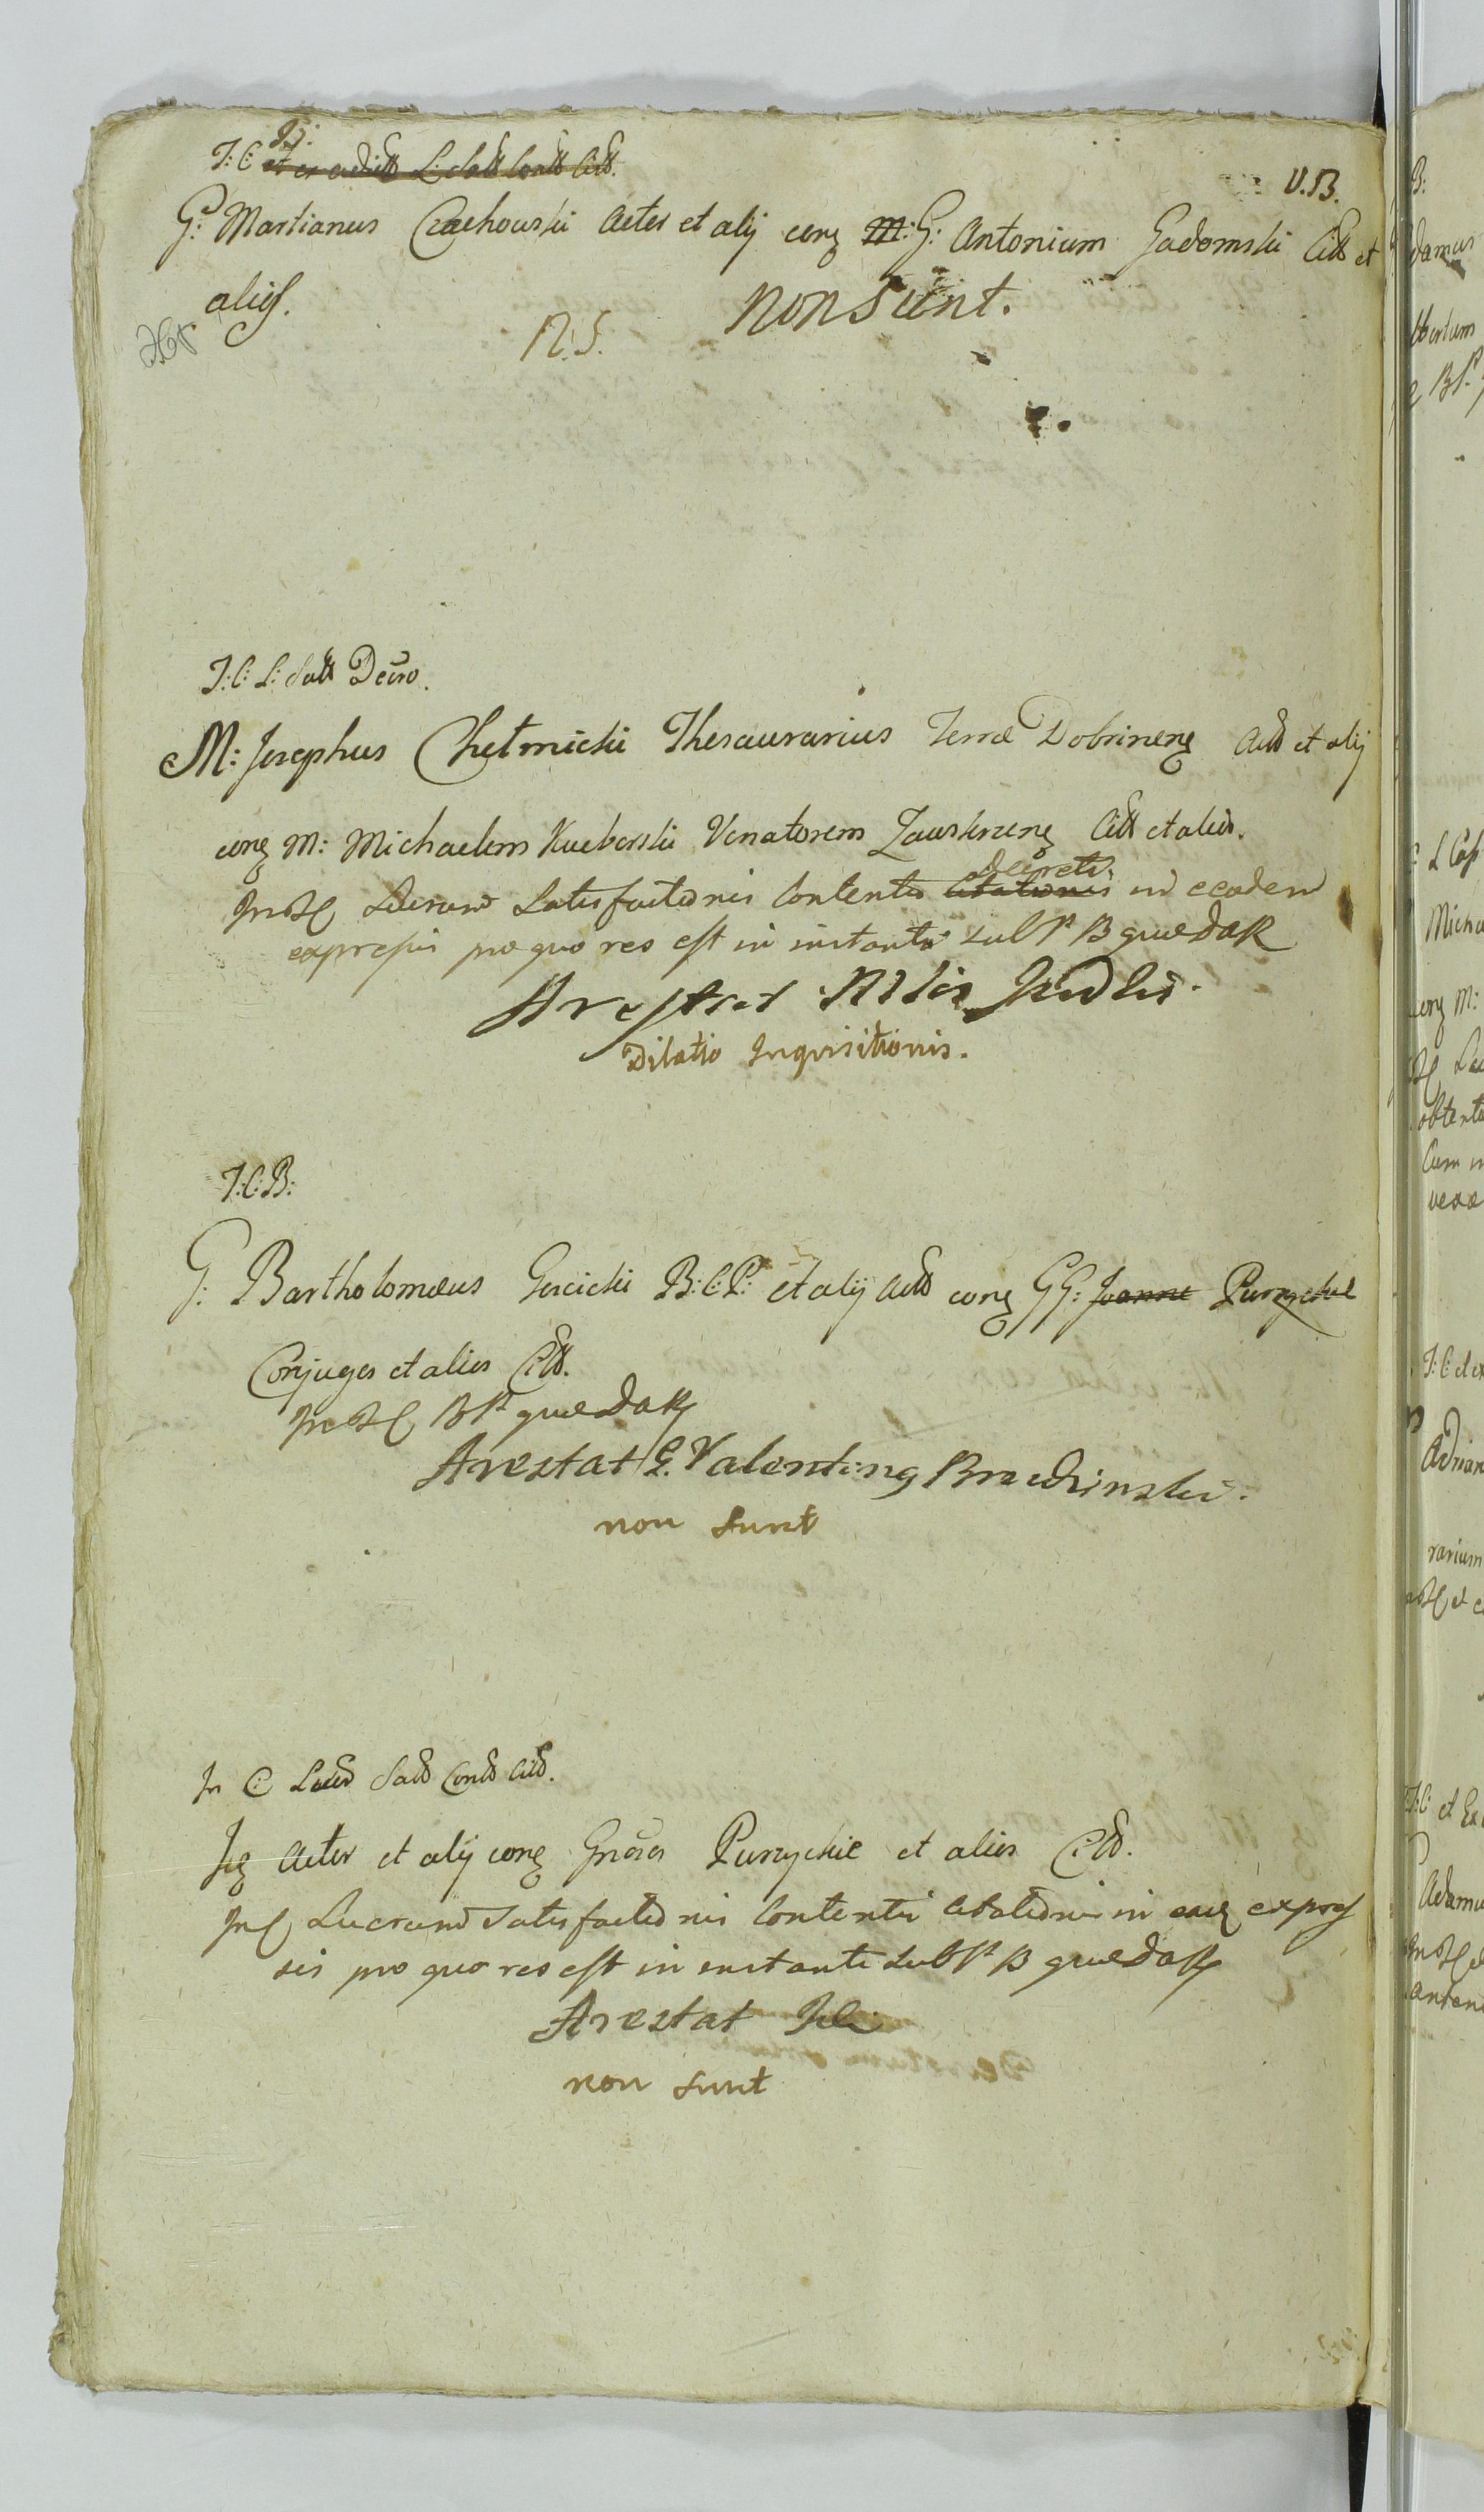 J: C: et ex adictt L: Satt Contt Citt.
V.B.
G: Martianus Czachowski Actor et alij conq M: G: Antonium Gadomski Citt et
alios.
N.S. non sunt.
J: C: L: Satt Decro.
M: Josephus Chełmicki Thesaurarius Terræ Dobrinenq Actt et alij
conq M: Michaelem Kuczborski Venatorem Zawskrzenq Citt et alios.
Decreti
Lucrand Satisfactionis Contentis Citationis in eadem
expressis pro quo res est in instanti sub Pt B quædak
Arestat Nilis
Dilatio Inquisitionis.
J: C: B:
G: Bartholomæus B: C: P: et alij Actt conq GG: Joanne Purzyckie
Conjuges et alios Citt.
B Pt quædak
Arestat G. Valentinq Brudzinski.
non sunt
In C: Satt Contt Citt.
Actor et alij conq Gnosos Purzyckie et alios Citt.
Lucrand Satisfactionis Contentis Citationis in eaq expres
sis pro quo res est in instanti sub Pt B quædak
Arestat
non sunt